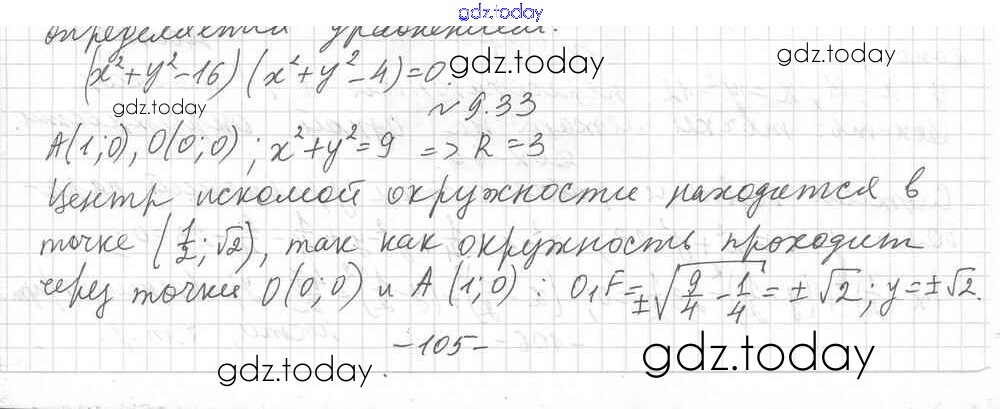 gdz.today
определяется уравнением:
(x²+y²-16)(x²+y²-4)=0 gdz.today
gdz.today N 9.33
A(1;0), O(0;0); x²+y²=9 => R=3
Центр искомой окружности находится в
точке (1/2; √2), так как окружность проходит
через точки O(0;0) и A(1;0): O₁F=±√(9/4-1/4)=±√2; y=±√2.
-105-
gdz.today gdz.today